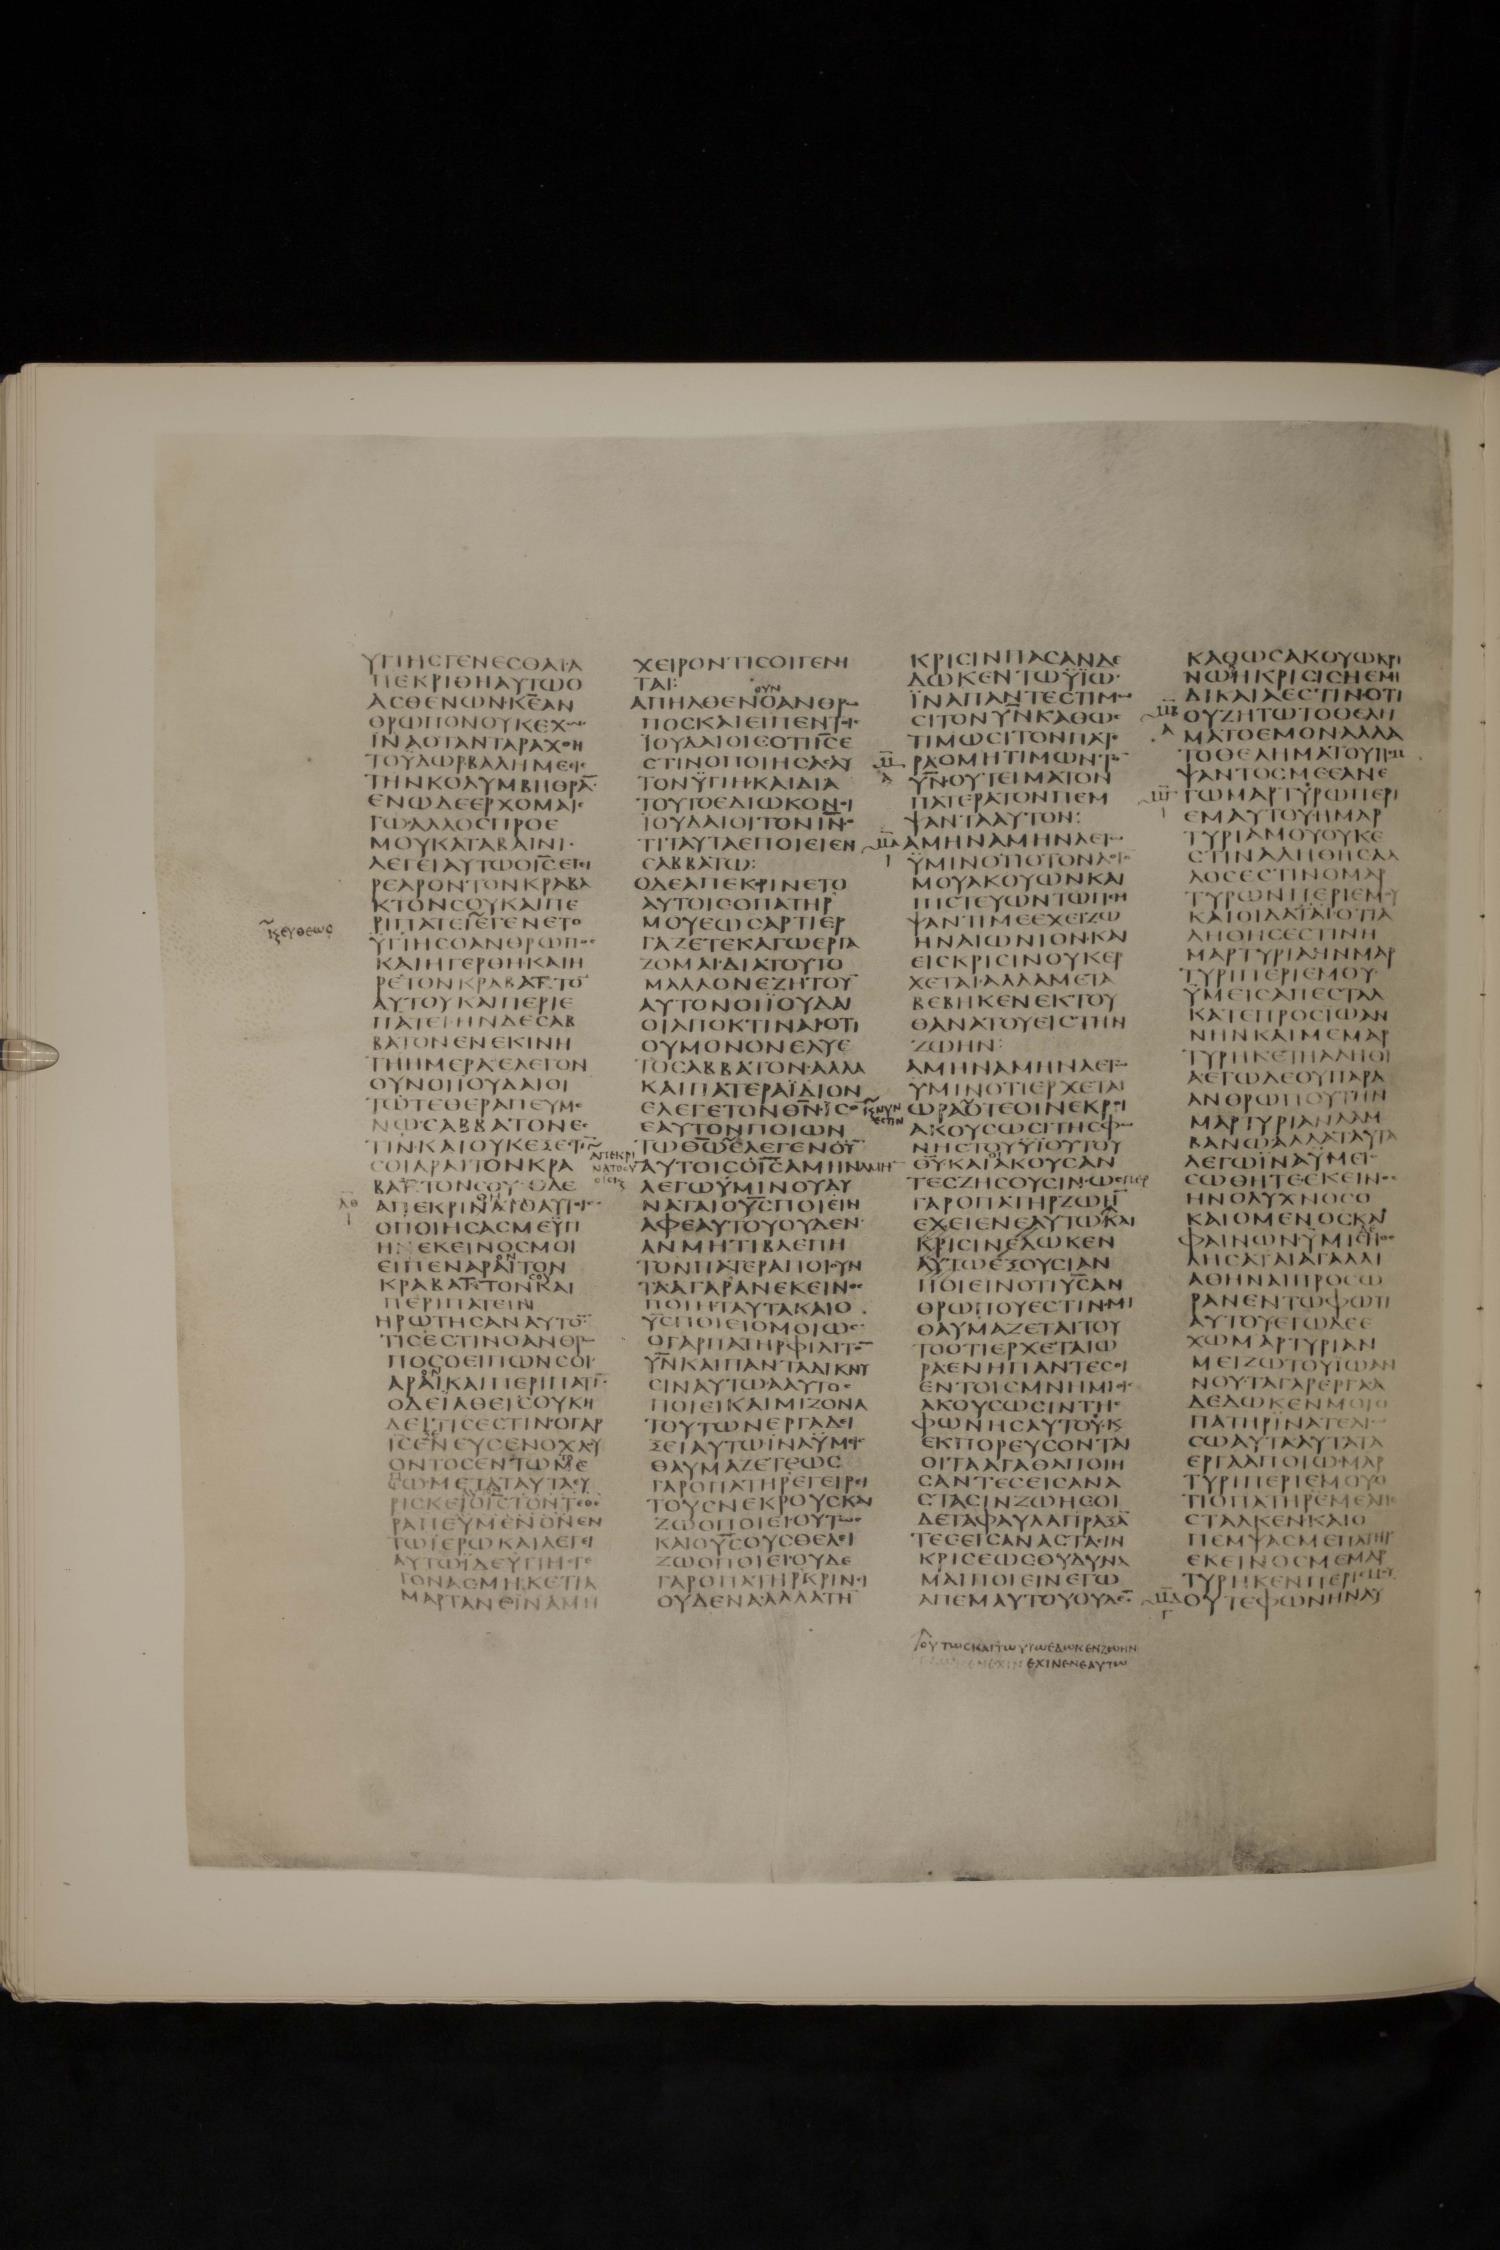 ΥΓΙΗΣ ΓΕΝΕΣΘΑΙ·Α
ΠΕΚΡΙΘΗ ΑΥΤΩ Ο
ΑΣΘΕΝΩΝ·Κ̅Ε̅ ΑΝ
ΘΡΩΠΟΝ ΟΥΚ ΕΧΩ
ΪΝΑ ΟΤΑΝ ΤΑΡΑΧΘΗ
ΤΟ ΥΔΩΡ ΒΑΛΗ ΜΕ ΕΙΣ
ΤΗΝ ΚΟΛΥΜΒΗΘΡΑ̅·
ΕΝ Ω ΔΕ ΕΡΧΟΜΑΙ Ε
ΓΩ·ΑΛΛΟΣ ΠΡΟ Ε
ΜΟΥ ΚΑΤΑΒΑΙΝΙ·
ΛΕΓΕΙ ΑΥΤΩ Ο Ι̅Σ̅ ΕΓΕΙ
ΡΕ ΑΡΟΝ ΤΟΝ ΚΡΑΒΑ
ΚΤΟΝ ΣΟΥ ΚΑΙ ΠΕ
ΡΙΠΑΤΕΙ ΕΓΕΝΕΤΟ
ΥΓΙΗΣ Ο ΑΝΘΡΩΠΟΣ
ΚΑΙ ΗΓΕΡΘΗ ΚΑΙ Η
ΡΕ ΤΟΝ ΚΡΑΒΑΚΤΟ̅
ΑΥΤΟΥ ΚΑΙ ΠΕΡΙΕ
ΠΑΤΕΙ·ΗΝ ΔΕ ΣΑΒ
ΒΑΤΟΝ ΕΝ ΕΚΙΝΗ
ΤΗ ΗΜΕΡΑ·ΕΛΕΓΟΝ
ΟΥΝ ΟΙ ΙΟΥΔΑΙΟΙ
ΤΩ ΤΕΘΕΡΑΠΕΥΜΕ
ΝΩ ΣΑΒΒΑΤΟΝ Ε
ΤΙΝ·ΚΑΙ ΟΥΚ ΕΞΕΣΤΙ̅
ΣΟΙ ΑΡΑΙ ΤΟΝ ΚΡΑ
ΒΑΚΤΟΝ ΣΟΥ·Ο ΔΕ
ΑΠΕΚΡΙΝΑΤΟ ΑΥΤΟΙΣ
Ο ΠΟΙΗΣΑΣ ΜΕ ΥΓΙ
Η ΕΚΕΙΝΟΣ ΜΟΙ
ΕΙΠΕΝ ΑΡΑΙ ΤΟΝ
ΚΡΑΒΑΚΤΟΝ ΚΑΙ
ΠΕΡΙΠΑΤΕΙΝ
ΗΡΩΤΗΣΑΝ ΑΥΤΟ̅
ΤΙΣ ΕΣΤΙΝ Ο ΑΝΘΡΩ
ΠΟΣ Ο ΕΙΠΩΝ ΣΟΙ
ΑΡΑΙ ΚΑΙ ΠΕΡΙΠΑΤΙ̅·
Ο ΔΕ ΙΑΘΕΙΣ ΟΥΚ Η
ΔΕΙ ΤΙΣ ΕΣΤΙΝ·Ο ΓΑΡ
Ι̅Σ̅ ΕΝΕΥΣΕΝ ΟΧΛΟΥ
ΟΝΤΟΣ ΕΝ ΤΩ ΜΕ
ΣΩ·ΜΕΤΑ ΤΑΥΤΑ ΕΥ
ΡΙΣΚΕΙ Ο Ι̅Σ̅ ΤΟΝ ΤΕΘΕ
ΡΑΠΕΥΜΕΝΟΝ ΕΝ
ΤΩ ΙΕΡΩ ΚΑΙ ΛΕΓΕΙ
ΑΥΤΩ ΙΔΕ ΥΓΙΗΣ ΓΕ
ΓΟΝΑΣ ΜΗΚΕΤΙ Α
ΜΑΡΤΑΝΕ ΪΝΑ ΜΗ
ΑΘ
Ι
ΕΥΘΕΩΣ
ΑΠΕΚΡΙ
ΝΑΤΟ ΟΥ
Ο ΙΣ
ΧΕΙΡΟΝ ΤΙ ΣΟΙ ΓΕΝΗ
ΤΑΙ:
ΑΠΗΛΘΕΝ Ο ΑΝΘΡΩ
ΟΥΝ
ΠΟΣ ΚΑΙ ΕΙΠΕΝ ΤΟΙΣ
ΙΟΥΔΑΙΟΙΣ ΟΤΙ Ι̅Σ̅ Ε
ΣΤΙΝ Ο ΠΟΙΗΣΑΣ ΑΥ
ΤΟΝ ΫΓΙΗ·ΚΑΙ ΔΙΑ
ΤΟΥΤΟ ΕΔΙΩΚΟΝ ΟΙ
ΙΟΥΔΑΙΟΙ ΤΟΝ Ι̅Ν̅ Ο
ΤΙ ΤΑΥΤΑ ΕΠΟΙΕΙ ΕΝ
ΣΑΒΒΑΤΩ:
Ο ΔΕ ΑΠΕΚΡΙΝΕΤΟ
ΑΥΤΟΙΣ Ο ΠΑΤΗΡ
ΜΟΥ ΕΩΣ ΑΡΤΙ ΕΡ
ΓΑΖΕΤΕ ΚΑΓΩ ΕΡΓΑ
ΖΟΜΑΙ·ΔΙΑ ΤΟΥΤΟ
ΜΑΛΛΟΝ ΕΖΗΤΟΥ̅
ΑΥΤΟΝ ΟΙ ΪΟΥΔΑΙ
ΟΙ ΑΠΟΚΤΙΝΑΙ·ΟΤΙ
ΟΥ ΜΟΝΟΝ ΕΛΥΕ
ΤΟ ΣΑΒΒΑΤΟΝ·ΑΛΛΑ
ΚΑΙ ΠΑΤΕΡΑ ΪΔΙΟΝ
ΕΛΕΓΕ ΤΟΝ Θ̅Ν̅·ΪΣΟ̅
ΕΑΥΤΟΝ ΠΟΙΩΝ
ΤΩ Θ̅Ω̅ ΕΛΕΓΕΝ ΟΥ̅
ΑΥΤΟΙΣ Ο Ι̅Σ̅ ΑΜΗΝ ΑΜΗ̅
ΛΕΓΩ ΫΜΙΝ ΟΥ ΔΥ
ΝΑΤΑΙ Ο Υ̅Σ̅ ΠΟΙΕΙΝ
ΑΦ ΕΑΥΤΟΥ ΟΥΔΕΝ
ΑΝ ΜΗ ΤΙ ΒΛΕΠΗ
ΤΟΝ ΠΑΤΕΡΑ ΠΟΙΟΥΝ
ΤΑ Α ΓΑΡ ΑΝ ΕΚΕΙΝΟΣ
ΠΟΙΗ ΤΑΥΤΑ ΚΑΙ Ο
Υ̅Σ̅ ΠΟΙΕΙ ΟΜΟΙΩΣ
Ο ΓΑΡ ΠΑΤΗΡ ΦΙΛΙ ΤΟ̅
Υ̅Ν̅ ΚΑΙ ΠΑΝΤΑ ΔΙΚΝΥ
ΣΙΝ ΑΥΤΩ Α ΑΥΤΟΣ
ΠΟΙΕΙ ΚΑΙ ΜΙΖΟΝΑ
ΤΟΥΤΩΝ ΕΡΓΑ ΔΕΙ
ΞΕΙ ΑΥΤΩ ΪΝΑ ΫΜΕΙΣ
ΘΑΥΜΑΖΕΤΕ ΩΣ
ΓΑΡ Ο ΠΑΤΗΡ ΕΓΕΙΡΕΙ
ΤΟΥΣ ΝΕΚΡΟΥΣ ΚΑΙ
ΖΩΟΠΟΙΕΙ·ΟΥΤΩΣ
ΚΑΙ Ο Υ̅Σ̅ ΟΥΣ ΘΕΛΕΙ
ΖΩΟΠΟΙΕΙ·ΟΥΔΕ
ΓΑΡ Ο ΠΑΤΗΡ ΚΡΙΝΕΙ
ΟΥΔΕΝΑ·ΑΛΛΑ ΤΗ̅
ΚΡΙΣΙΝ ΠΑΣΑΝ ΔΕ
ΔΩΚΕΝ ΤΩ ΫΪΩ·
ΪΝΑ ΠΑΝΤΕΣ ΤΙΜΩ
ΣΙ ΤΟΝ Υ̅Ν̅ ΚΑΘΩΣ
ΤΙΜΩΣΙ ΤΟΝ ΠΑΤΕ
ΡΑ Ο ΜΗ ΤΙΜΩΝ ΤΟ̅
Υ̅Ν̅·ΟΥ ΤΕΙΜΑ ΤΟΝ
ΠΑΤΕΡΑ ΤΟΝ ΠΕΜ
ΨΑΝΤΑ ΑΥΤΟΝ:
ΑΜΗΝ ΑΜΗΝ ΛΕΓΩ
ΫΜΙΝ ΟΤΙ Ο ΤΟΝ ΛΟΓΟ̅
ΜΟΥ ΑΚΟΥΩΝ ΚΑΙ
ΠΙΣΤΕΥΩΝ ΤΩ ΠΕΜ
ΨΑΝΤΙ ΜΕ ΕΧΕΙ ΖΩ
ΗΝ ΑΙΩΝΙΟΝ·ΚΑΙ
ΕΙΣ ΚΡΙΣΙΝ ΟΥΚ ΕΡ
ΧΕΤΑΙ·ΑΛΛΑ ΜΕΤΑ
ΒΕΒΗΚΕΝ ΕΚ ΤΟΥ
ΘΑΝΑΤΟΥ ΕΙΣ ΤΗΝ
ΖΩΗΝ:
ΑΜΗΝ ΑΜΗΝ ΛΕΓΩ
ΥΜΙΝ ΟΤΙ ΕΡΧΕΤΑΙ
ΩΡΑ ΟΤΕ ΟΙ ΝΕΚΡΟΙ
ΚΑΙ ΝΥΝ
ΕΣΤΙΝ
ΑΚΟΥΣΩΣΙ ΤΗΣ ΦΩ
ΝΗΣ ΤΟΥ ΫΪΟΥ ΤΟΥ
Θ̅Υ̅·ΚΑΙ ΑΚΟΥΣΑΝ
ΤΕΣ ΖΗΣΟΥΣΙΝ·ΩΣΠΕΡ
ΓΑΡ Ο ΠΑΤΗΡ ΖΩΗ̅
ΕΧΕΙ ΕΝ ΕΑΥΤΩ ΚΑΙ
ΚΡΙΣΙΝ ΕΔΩΚΕΝ
ΑΥΤΩ ΕΞΟΥΣΙΑΝ
ΠΟΙΕΙΝ ΟΤΙ Υ̅Σ̅ ΑΝ
ΘΡΩΠΟΥ ΕΣΤΙΝ·ΜΗ
ΘΑΥΜΑΖΕΤΑΙ ΤΟΥ
ΤΟ ΟΤΙ ΕΡΧΕΤΑΙ Ω
ΡΑ ΕΝ Η ΠΑΝΤΕΣ ΟΙ
ΕΝ ΤΟΙΣ ΜΝΗΜΙΟΙΣ
ΑΚΟΥΣΩΣΙΝ ΤΗΣ
ΦΩΝΗΣ ΑΥΤΟΥ·Κ
ΕΚΠΟΡΕΥΣΟΝΤΑΙ
ΟΙ ΤΑ ΑΓΑΘΑ ΠΟΙΗ
ΣΑΝΤΕΣ ΕΙΣ ΑΝΑ
ΣΤΑΣΙΝ ΖΩΗΣ ΟΙ
ΔΕ ΤΑ ΦΑΥΛΑ ΠΡΑΞΑ̅
ΤΕΣ ΕΙΣ ΑΝΑΣΤΑΣΙΝ
ΚΡΙΣΕΩΣ ΟΥ ΔΥΝΑ
ΜΑΙ ΠΟΙΕΙΝ ΕΓΩ
ΑΠ ΕΜΑΥΤΟΥ ΟΥΔΕ̅
ΟΥΤΩΣ ΚΑΙ ΤΩ ΥΙΩ ΕΔΩΚΕΝ ΖΩΗΝ
ΕΧΙΝ ΕΝ ΕΑΥΤΩ
ΚΑΘΩΣ ΑΚΟΥΩ ΚΡΙ
ΝΩ Η ΚΡΙΣΙΣ Η ΕΜΗ
ΔΙΚΑΙΑ ΕΣΤΙΝ·ΟΤΙ
ΟΥ ΖΗΤΩ ΤΟ ΘΕΛΗ
ΜΑ ΤΟ ΕΜΟΝ ΑΛΛΑ
ΤΟ ΘΕΛΗΜΑ ΤΟΥ ΠΕΜ
ΨΑΝΤΟΣ ΜΕ ΕΑΝ Ε
ΓΩ ΜΑΡΤΥΡΩ ΠΕΡΙ
ΕΜΑΥΤΟΥ·Η ΜΑΡ
ΤΥΡΙΑ ΜΟΥ ΟΥΚ Ε
ΣΤΙΝ ΑΛΗΘΗΣ ΑΛ
ΛΟΣ ΕΣΤΙΝ Ο ΜΑΡ
ΤΥΡΩΝ ΠΕΡΙ ΕΜΟΥ
ΚΑΙ ΟΙΔΑΤΑΙ ΟΤΙ Α
ΛΗΘΗΣ ΕΣΤΙΝ Η
ΜΑΡΤΥΡΙΑ·ΗΝ ΜΑΡ
ΤΥΡΙ ΠΕΡΙ ΕΜΟΥ·
ΫΜΕΙΣ ΑΠΕΣΤΑΛ
ΚΑΤΕ ΠΡΟΣ ΙΩΑΝ
ΝΗΝ ΚΑΙ ΜΕΜΑΡ
ΤΥΡΗΚΕ ΤΗ ΑΛΗΘΙ
Α ΕΓΩ ΔΕ ΟΥ ΠΑΡΑ
ΑΝΘΡΩΠΟΥ ΤΗΝ
ΜΑΡΤΥΡΙΑΝ ΛΑΜ
ΒΑΝΩ ΑΛΛΑ ΤΑΥΤΑ
ΛΕΓΩ ΪΝΑ ΫΜΕΙΣ
ΣΩΘΗΤΕ ΕΚΕΙΝΟΣ
ΗΝ Ο ΛΥΧΝΟΣ Ο
ΚΑΙΟΜΕΝΟΣ ΚΑΙ
ΦΑΙΝΩΝ·ΫΜΙΣ ΗΘΕ
ΛΗΣΑΤΑΙ ΑΓΑΛΛΙ
ΑΘΗΝΑΙ ΠΡΟΣ Ω
ΡΑΝ ΕΝ ΤΩ ΦΩΤΙ
ΑΥΤΟΥ ΕΓΩ ΔΕ Ε
ΧΩ ΜΑΡΤΥΡΙΑΝ
ΜΕΙΖΩ ΤΟΥ ΪΩΑΝ
ΝΟΥ·ΤΑ ΓΑΡ ΕΡΓΑ Α
ΔΕΔΩΚΕΝ ΜΟΙ Ο
ΠΑΤΗΡ ΪΝΑ ΤΕΛΙ
ΣΩ ΑΥΤΑ ΑΥΤΑ ΤΑ
ΕΡΓΑ Α ΠΟΙΩ·ΜΑΡ
ΤΥΡΙ ΠΕΡΙ ΕΜΟΥ Ο
ΤΙ Ο ΠΑΤΗΡ ΕΜΕ ΑΠΕ
ΣΤΑΛΚΕΝ ΚΑΙ Ο
ΠΕΜΨΑΣ ΜΕ ΠΑΤΗΡ
ΕΚΕΙΝΟΣ ΜΕΜΑΡ
ΤΥΡΗΚΕΝ ΠΕΡΙ ΕΜΟΥ
ΟΥΤΕ ΦΩΝΗΝ ΑΥ